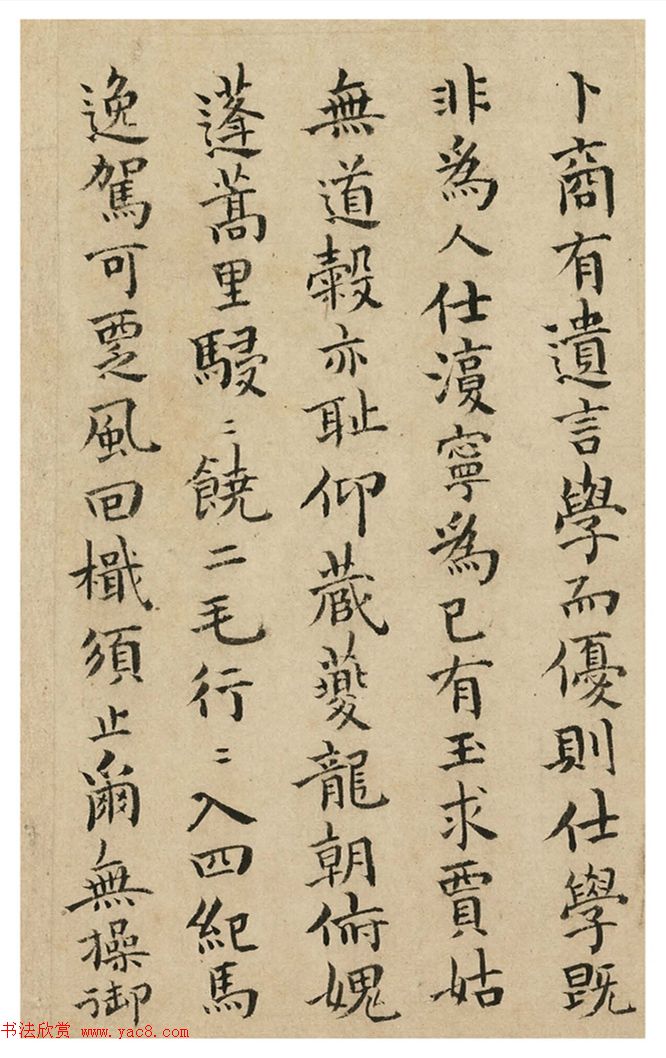 卜商有遺言學而優則仕學既
非爲人仕寧爲已有玉求賈姑
無道穀亦耻仰蔵夔龍朝俯媿
蓬蒿里駸〻饒二毛行〻入四紀馬
逸駕可覂風回檝須止爾無操御
书法欣赏 www.yac8.com